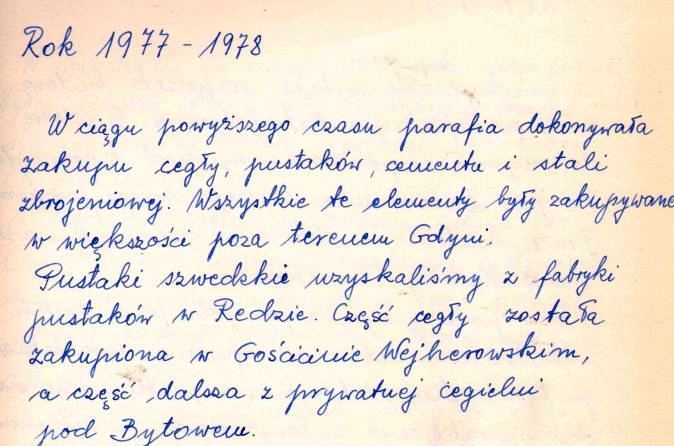 Rok 1977 - 1978
W ciągu powyższego czasu parafia dokonywała
zakupu cegły, pustaków, cementu i stali
zbrojeniowej. Wszystkie te elementy były zakupywane
w większości poza terenem Gdyni.
Pustaki szwedzkie uzyskaliśmy z fabryki
pustaków w Redzie. Część cegły została
zakupiona w Gościcinie Wejherowskim,
a część dalsza z prywatnej cegielni
pod Bytowem.